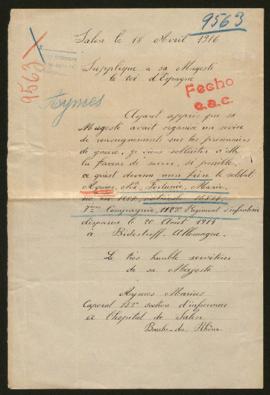 9563
Salon le 18 Avril 1916
9563
Supplique a sa Majesté
le roi d'Espagne
Fecho
e.a.c.
Aymes
Ayant appris que sa
Majesté avait organisé un service
de renseignements sur les prisonniers
de guerre, je viens solliciter d'elle
la faveur de savoir, si possible,
ce qu'est devenu mon frère le soldat
Aymes, Marie,
Compagnie, Régiment infanterie
disparu le 20 Août 1914
à Bidestroff, Allemagne.
Le très humble serviteur
de sa Majesté
Aymes Marius
Caporal 15e section d'infirmiers
a l'hopital de Salon
Bouches-du-Rhône